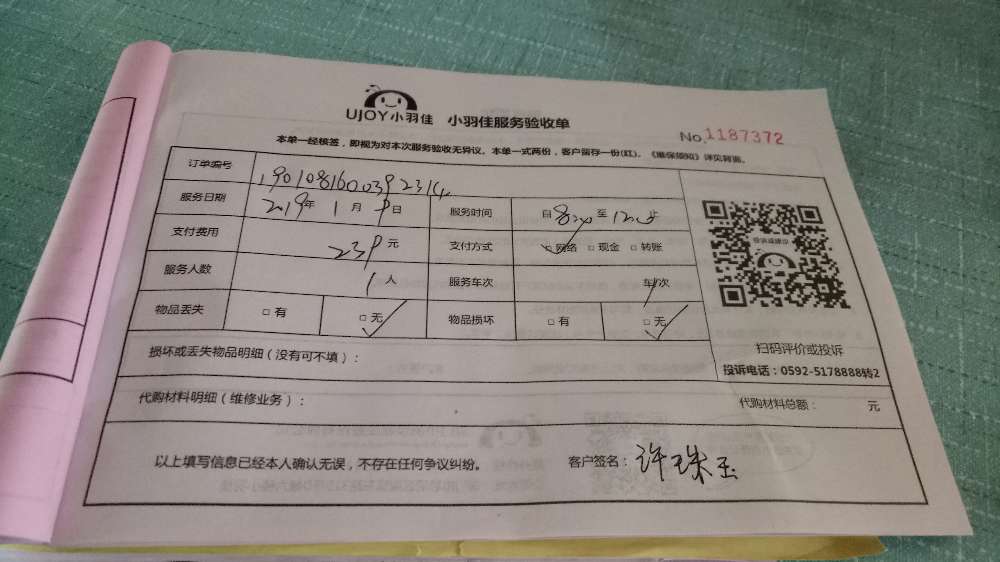 UJOY小羽佳 小羽佳服务验收单
No.1187372
本单一经核签，即视为对本次服务验收无异议。本单一式两份，客户留存一份(红)。《維保须知》详见背面。
订单编号
服务日期 2019年 1月 9日 服务时间 自 至
支付费用 239元 支付方式 □网络 □现金 □转账
服务人数 1人 服务车次 车/次
物品丢失 □有 □无 物品损坏 □有 □无
投诉或建议
扫码评价或投诉
投诉电话：0592-5178888转2
损坏或丢失物品明细（没有可不填）：
代购材料明细（维修业务）： 代购材料总额： 元
以上填写信息已经本人确认无误，不存在任何争议纠纷。 客户签名：许珠玉